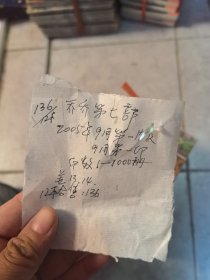 136/件 乔乔第七部
2005年9月第一版
9月第一印
印数1—1000册
差13.14.
12本合售.136